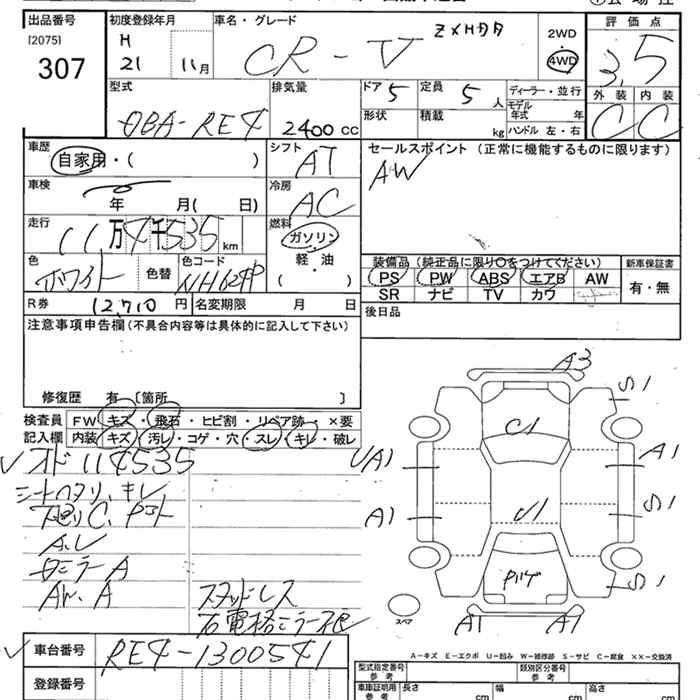 出品番号 初度登録年月 車名・グレード 2WD 評価点
[2075] H ZXHDD ・
307 21 11月 CR-V 4WD 3.5
型式 排気量 ドア 5 定員 5人 ディーラー・並行 外装 内装
DBA-RE4 2400cc 形状 積載 kg モデル年式 年 C C
ハンドル 左・右
車歴 シフト セールスポイント (正常に機能するものに限ります)
自家用・( ) AT AW
車検 冷房
年 月( 日) AC
走行 燃料
11万4千535km ガソリン
色 色替 色コード 軽・油 装備品 (純正品に限り○をつけてください) 新車保証書
ホワイト NH624P ( ) PS PW ABS エアB AW 有・無
R券 12,710円 名変期限 月 日 SR ナビ TV カワ
注意事項申告欄 (不具合内容等は具体的に記入して下さい) 後日品
修復歴 有 〔箇所 〕
検査員 FW キズ・飛石・ヒビ割・リペア跡・×要
記入欄 内装 キズ・汚レ・コゲ・穴・スレ・キレ・破レ
オド114535
シートヘタリ、キレ
下廻りC、
A.L
A
AW.A
スタッドレス
右電格ミラー
車台番号 RE4-1300541
登録番号
A3
S1
C1
A1
A1
A1
S1
S1
A1
A1
スペア
A-キズ E-エクボ U-凹み W-補修跡 S-サビ C-腐食 ××-交換済
型式指定番号 類別区分番号
参考 参考
車庫証明用 長さ 幅 高さ
参考 cm cm cm